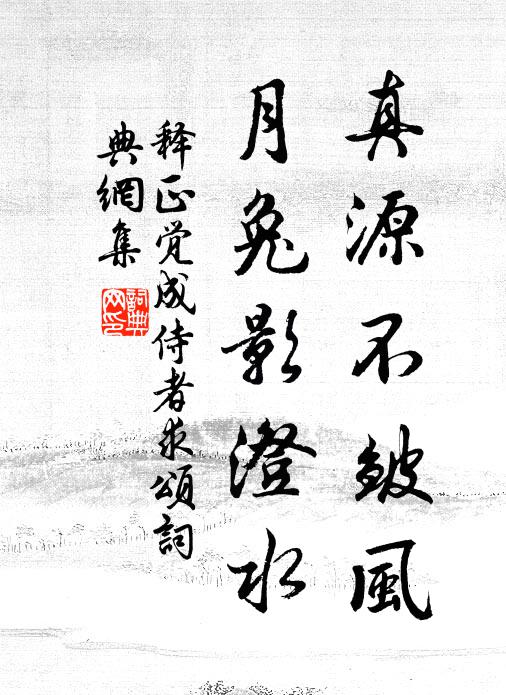 真源不皴風
月兔影澄水
释正觉成侍者求頌詞
典網集
詞典
网印